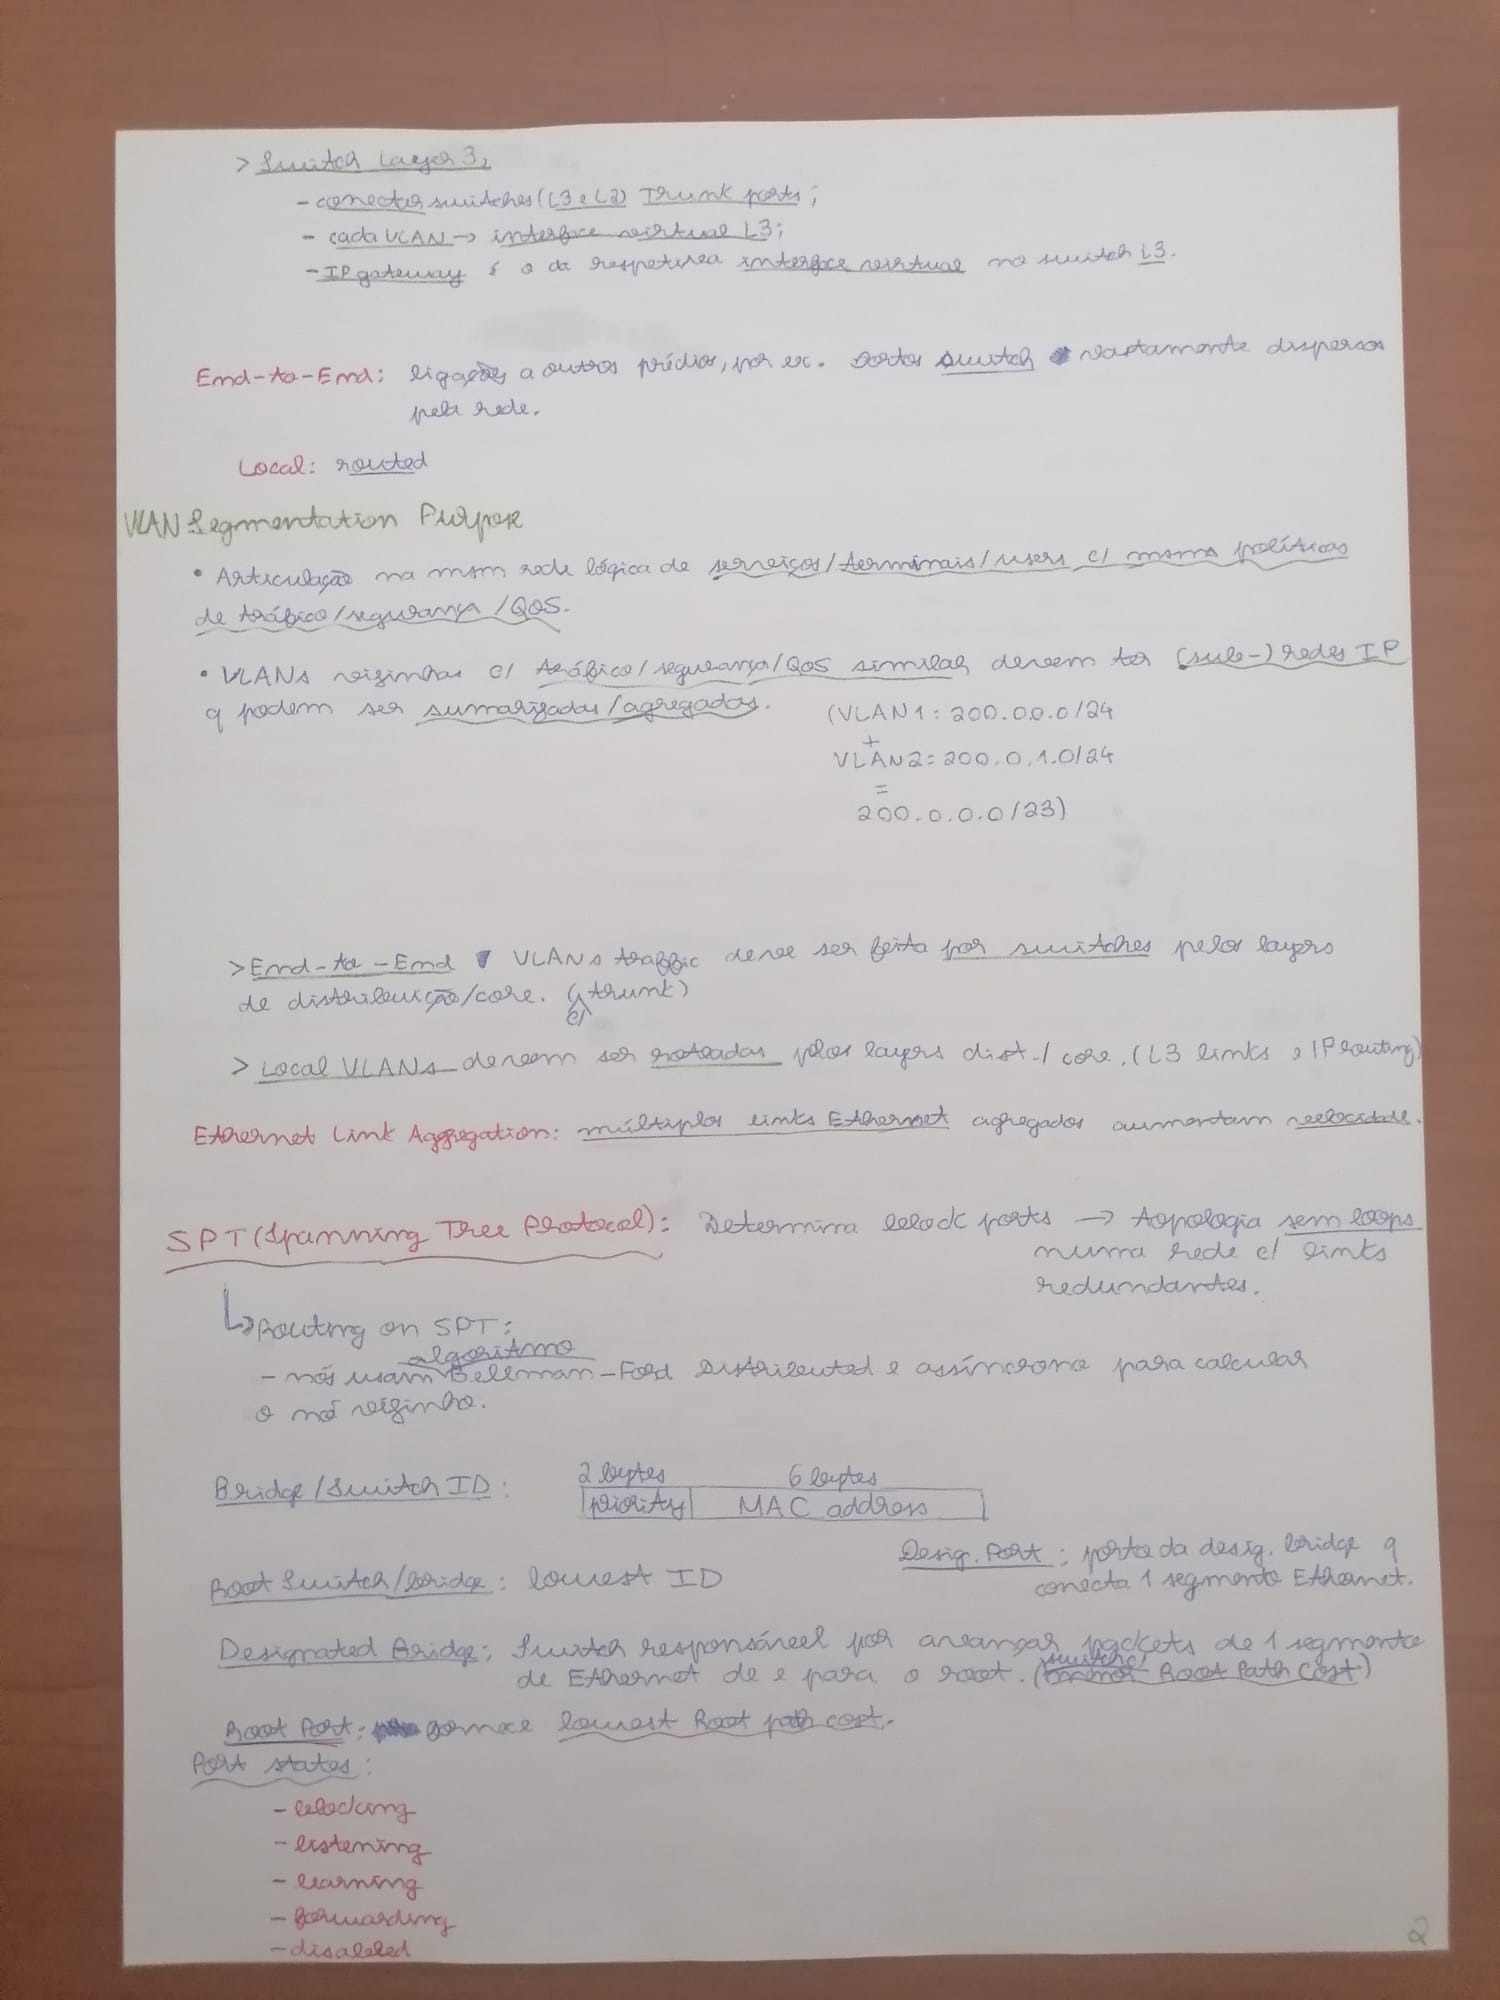 > Switch Layer 3,
- conectar switches (L3 e L2) Trunk ports;
- cada VLAN → interface virtual L3;
- IP gateway é o da respetiva interface virtual no switch L3.
End-to-End: ligações a outros prédios, por ex. Portos switch vastamente dispersos
pela rede.
Local: routed
VLAN Segmentation Purpose
• Articulação na msm rede lógica de serviços/terminais/users c/ msms políticas
de tráfico/segurança/QOS.
• VLANs vizinhas c/ tráfico/segurança/QoS similar devem ter (sub-) redes IP
q podem ser sumarizadas/agregadas.
(VLAN1: 200.0.0.0/24
+
VLAN2= 200.0.1.0/24
=
200.0.0.0/23)
> End-to-End VLANs traffic deve ser feita por switches pelos layers
de distribuição/core. (c/ trunk)
> Local VLANs devem ser roteadas pelos layers dist./core. (L3 links e IP routing)
Ethernet Link Aggregation: múltiplos links Ethernet agregados aumentam velocidade.
SPT (Spanning Tree Protocol): Determina block ports → topologia sem loops
numa rede c/ links
redundantes.
↳ Routing on SPT:
- nós usam algoritmo Bellman-Ford Distributed e assíncrono para calcular
o nó vizinho.
2 bytes 6 bytes
Bridge/Switch ID: priority MAC address
Desig. Port: porta da desig. bridge q
conecta 1 segmento Ethernet.
Root Switch/bridge: lowest ID
Designated Bridge: Switch responsável por avançar packets de 1 segmento
de Ethernet de e para o root. (switch c/ menor Root Path Cost)
Root Port: fornece lowest Root path cost.
Port states:
- blocking
- listening
- learning
- forwarding
- disabled
2